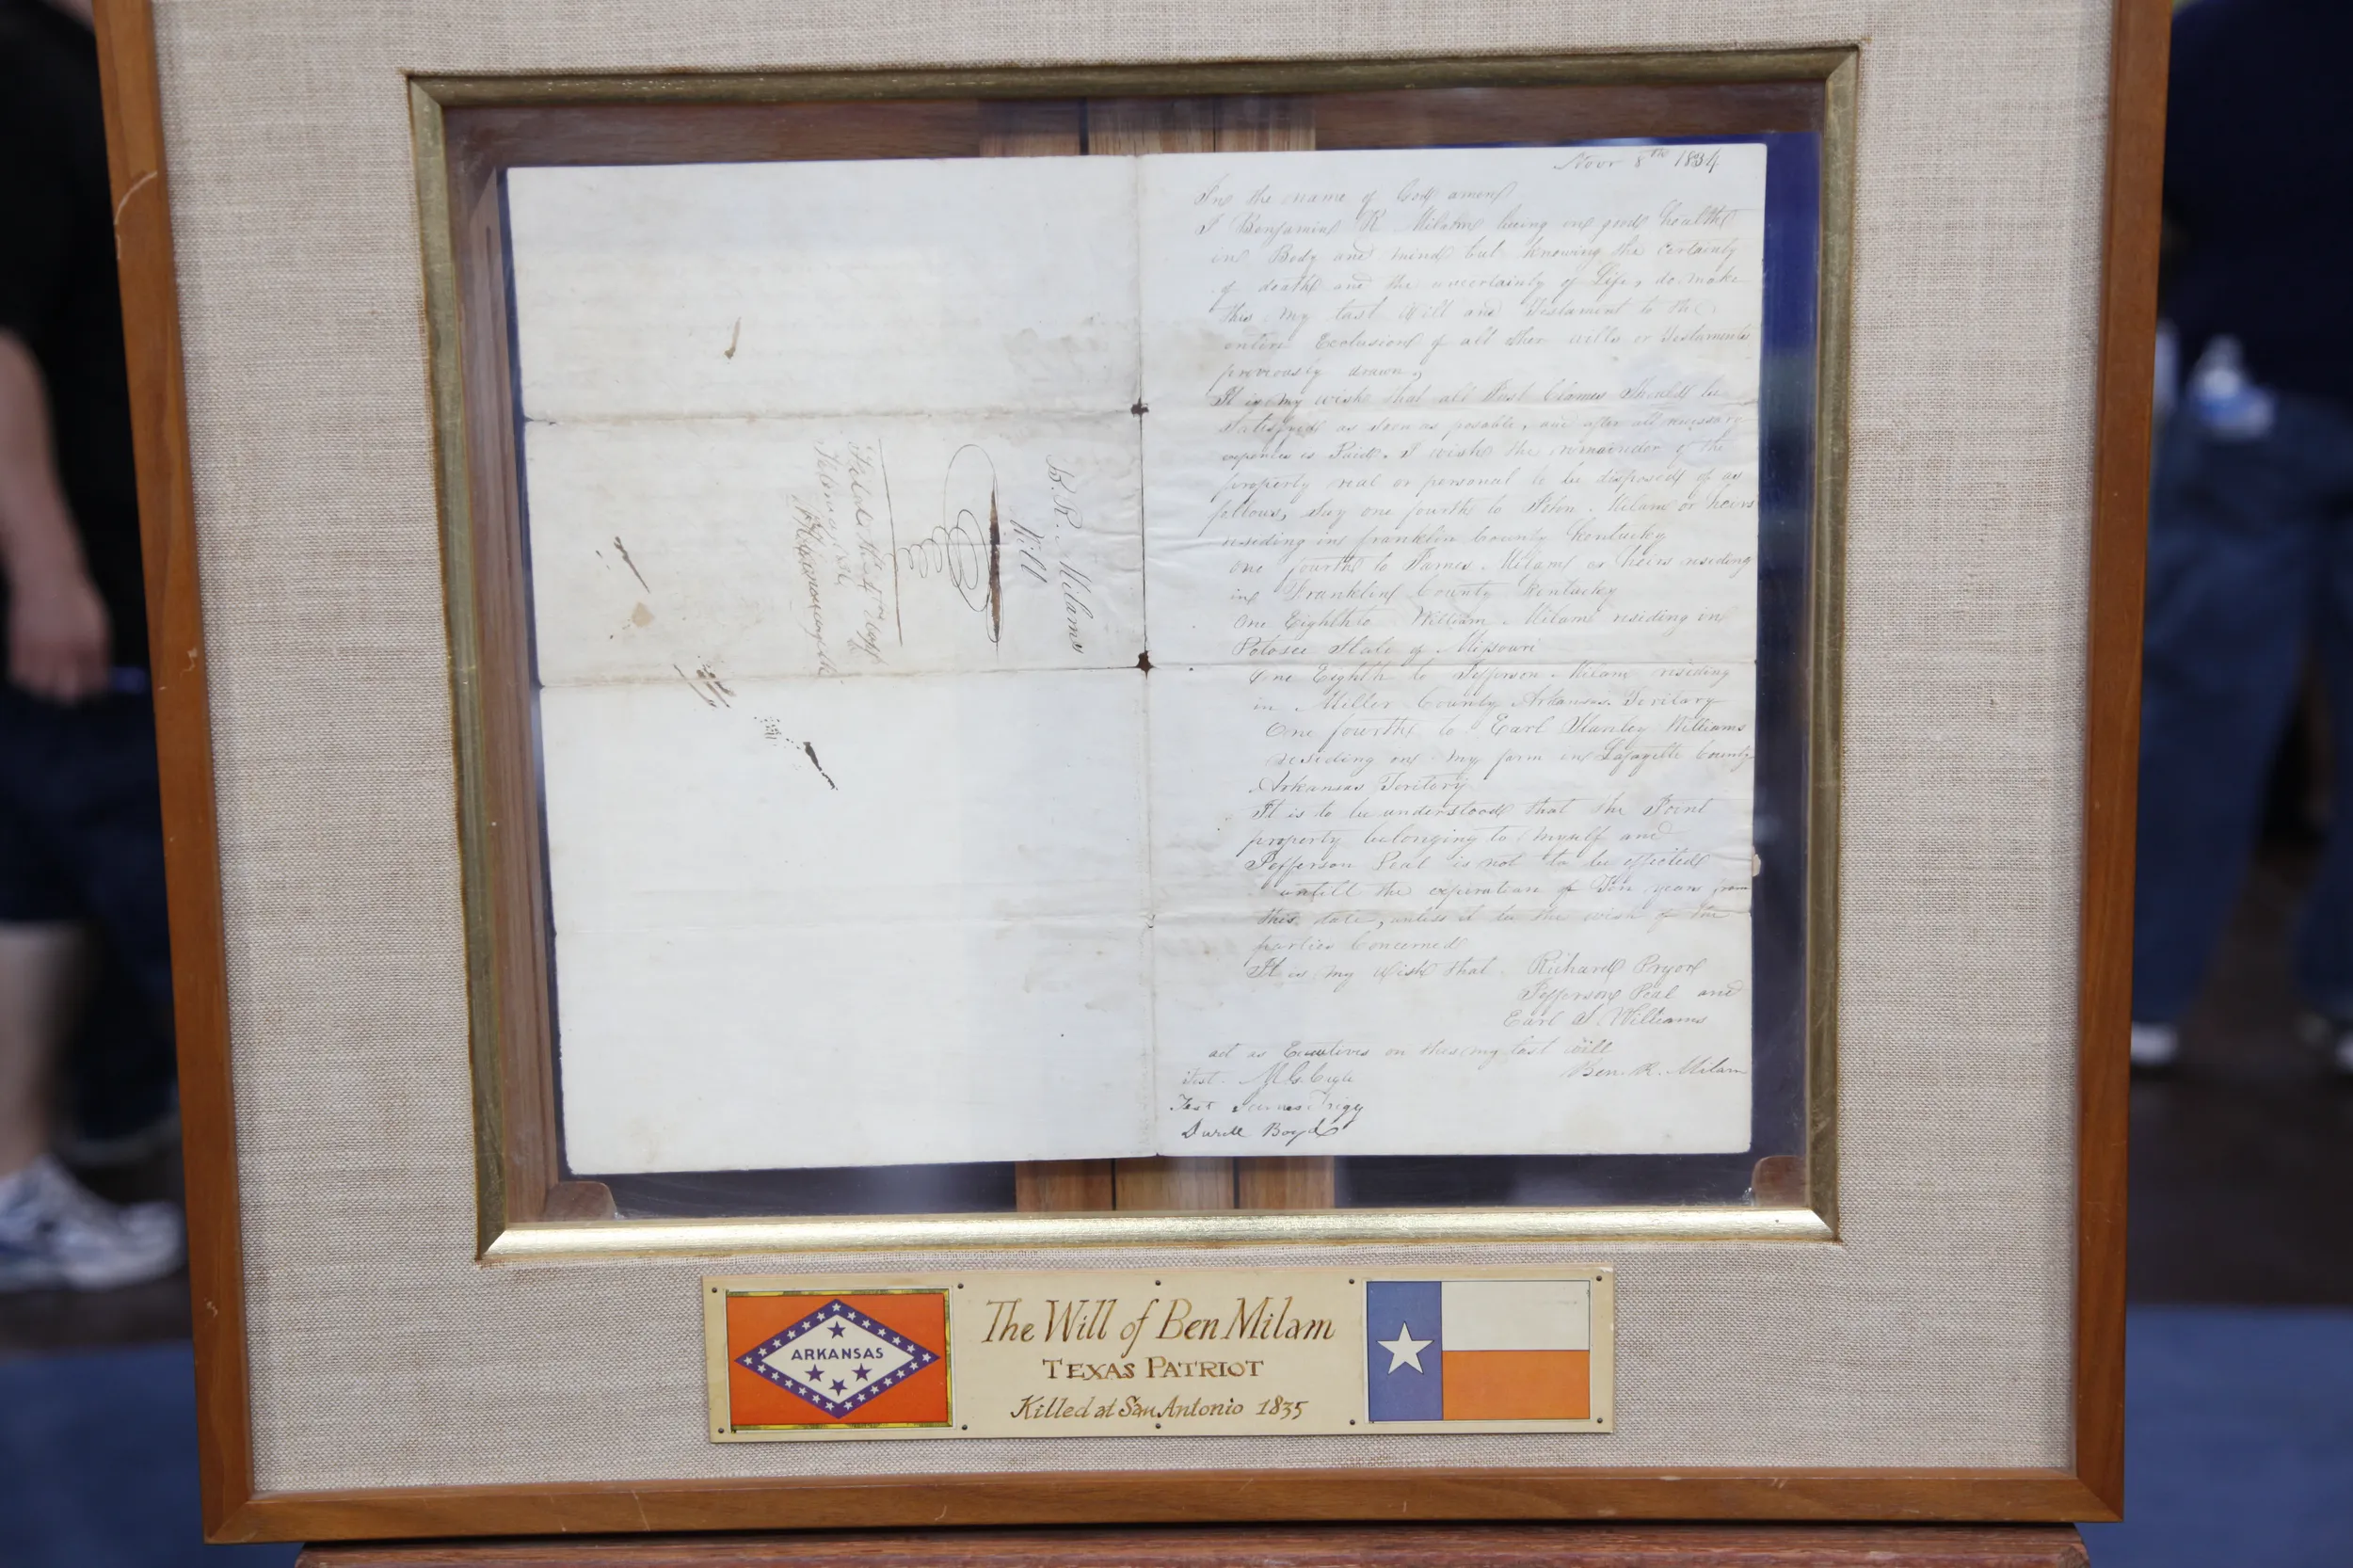 Novr 8th 1834
In the name of God amen
I Benjamin R Milam being in good health
in Body and mind but knowing the certainty
of death and the uncertainty of Life, do make
this my last Will and Testament to the
entire Exclusion of all other wills or Testaments
previously drawn,
It is my wish that all Just Claimes Should be
Satisfyed as soon as posable, and after all necessary
expences is Paid. I wish the remainder of the
property real or personal to be disposed of as
follows, Say one fourth to John Milam or heirs
residing in franklin County Kentucky
one fourth to James Milam or heirs residing
in Franklin County Kentucky
One Eighth to William Milam residing in
Potosee State of Missouri
One Eighth to Jefferson Milam residing
in Miller County Arkansas Teritary
One fourth to Earl Stanley Williams
residing on my farm in Lafayette County
Arkansas Teritory
It is to be understood that the Joint
property belonging to myself and
Jefferson Peal is not to be effected
untill the experation of Ten years from
this date, unless it be the wish of the
parties Concerned
It is my wish that Richard Pryor
Jefferson Peal and
Earl S Williams
act as Executives on this my last will
Ben. R. Milam
Test
Test James Trigg
Boyd
B. R. Milams
Will
The Will of Ben Milam
TEXAS PATRIOT
Killed at San Antonio 1835
ARKANSAS